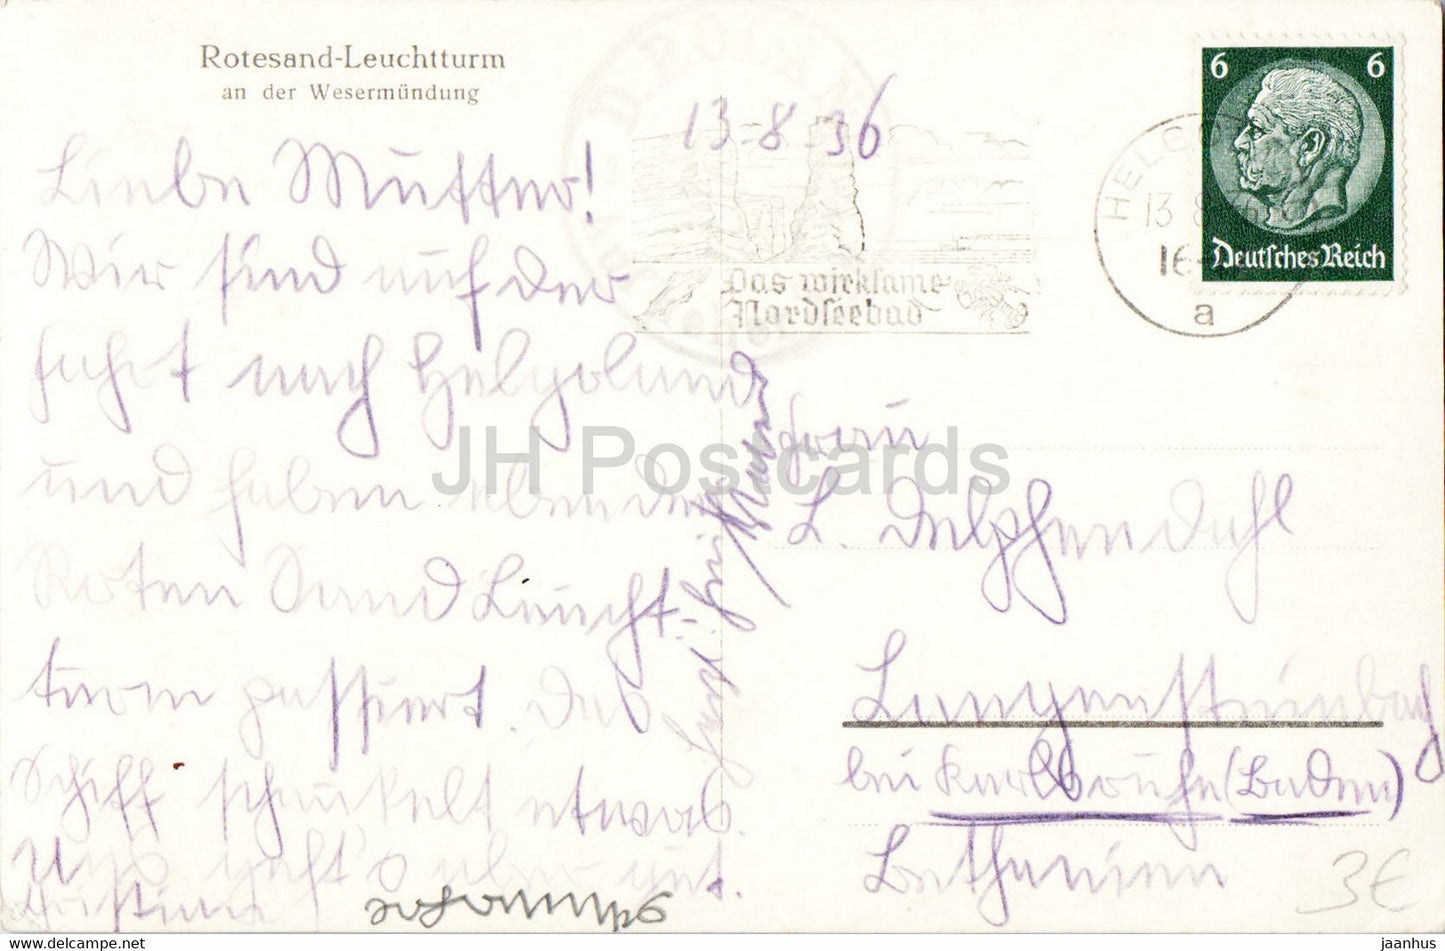 Rotesand-Leuchtturm
an der Wesermündung
13-8-36
Liebe Mutter!
Wir sind auf der
Fahrt nach Helgoland
und haben eben den
Roten Sand Leucht-
turm passiert. Das
Schiff schaukelt etwas.
Uns geht's aber gut.
Christine
6 6
Deutsches Reich
HELGO
13 8
16
a
Das wirksame
Nordseebad
Frau
L. Delphendahl
Langensteinbach
bei Karlsruhe (Baden)
Bethanien
3€
JH Postcards
https://www.ecwid.com/
jaanhus